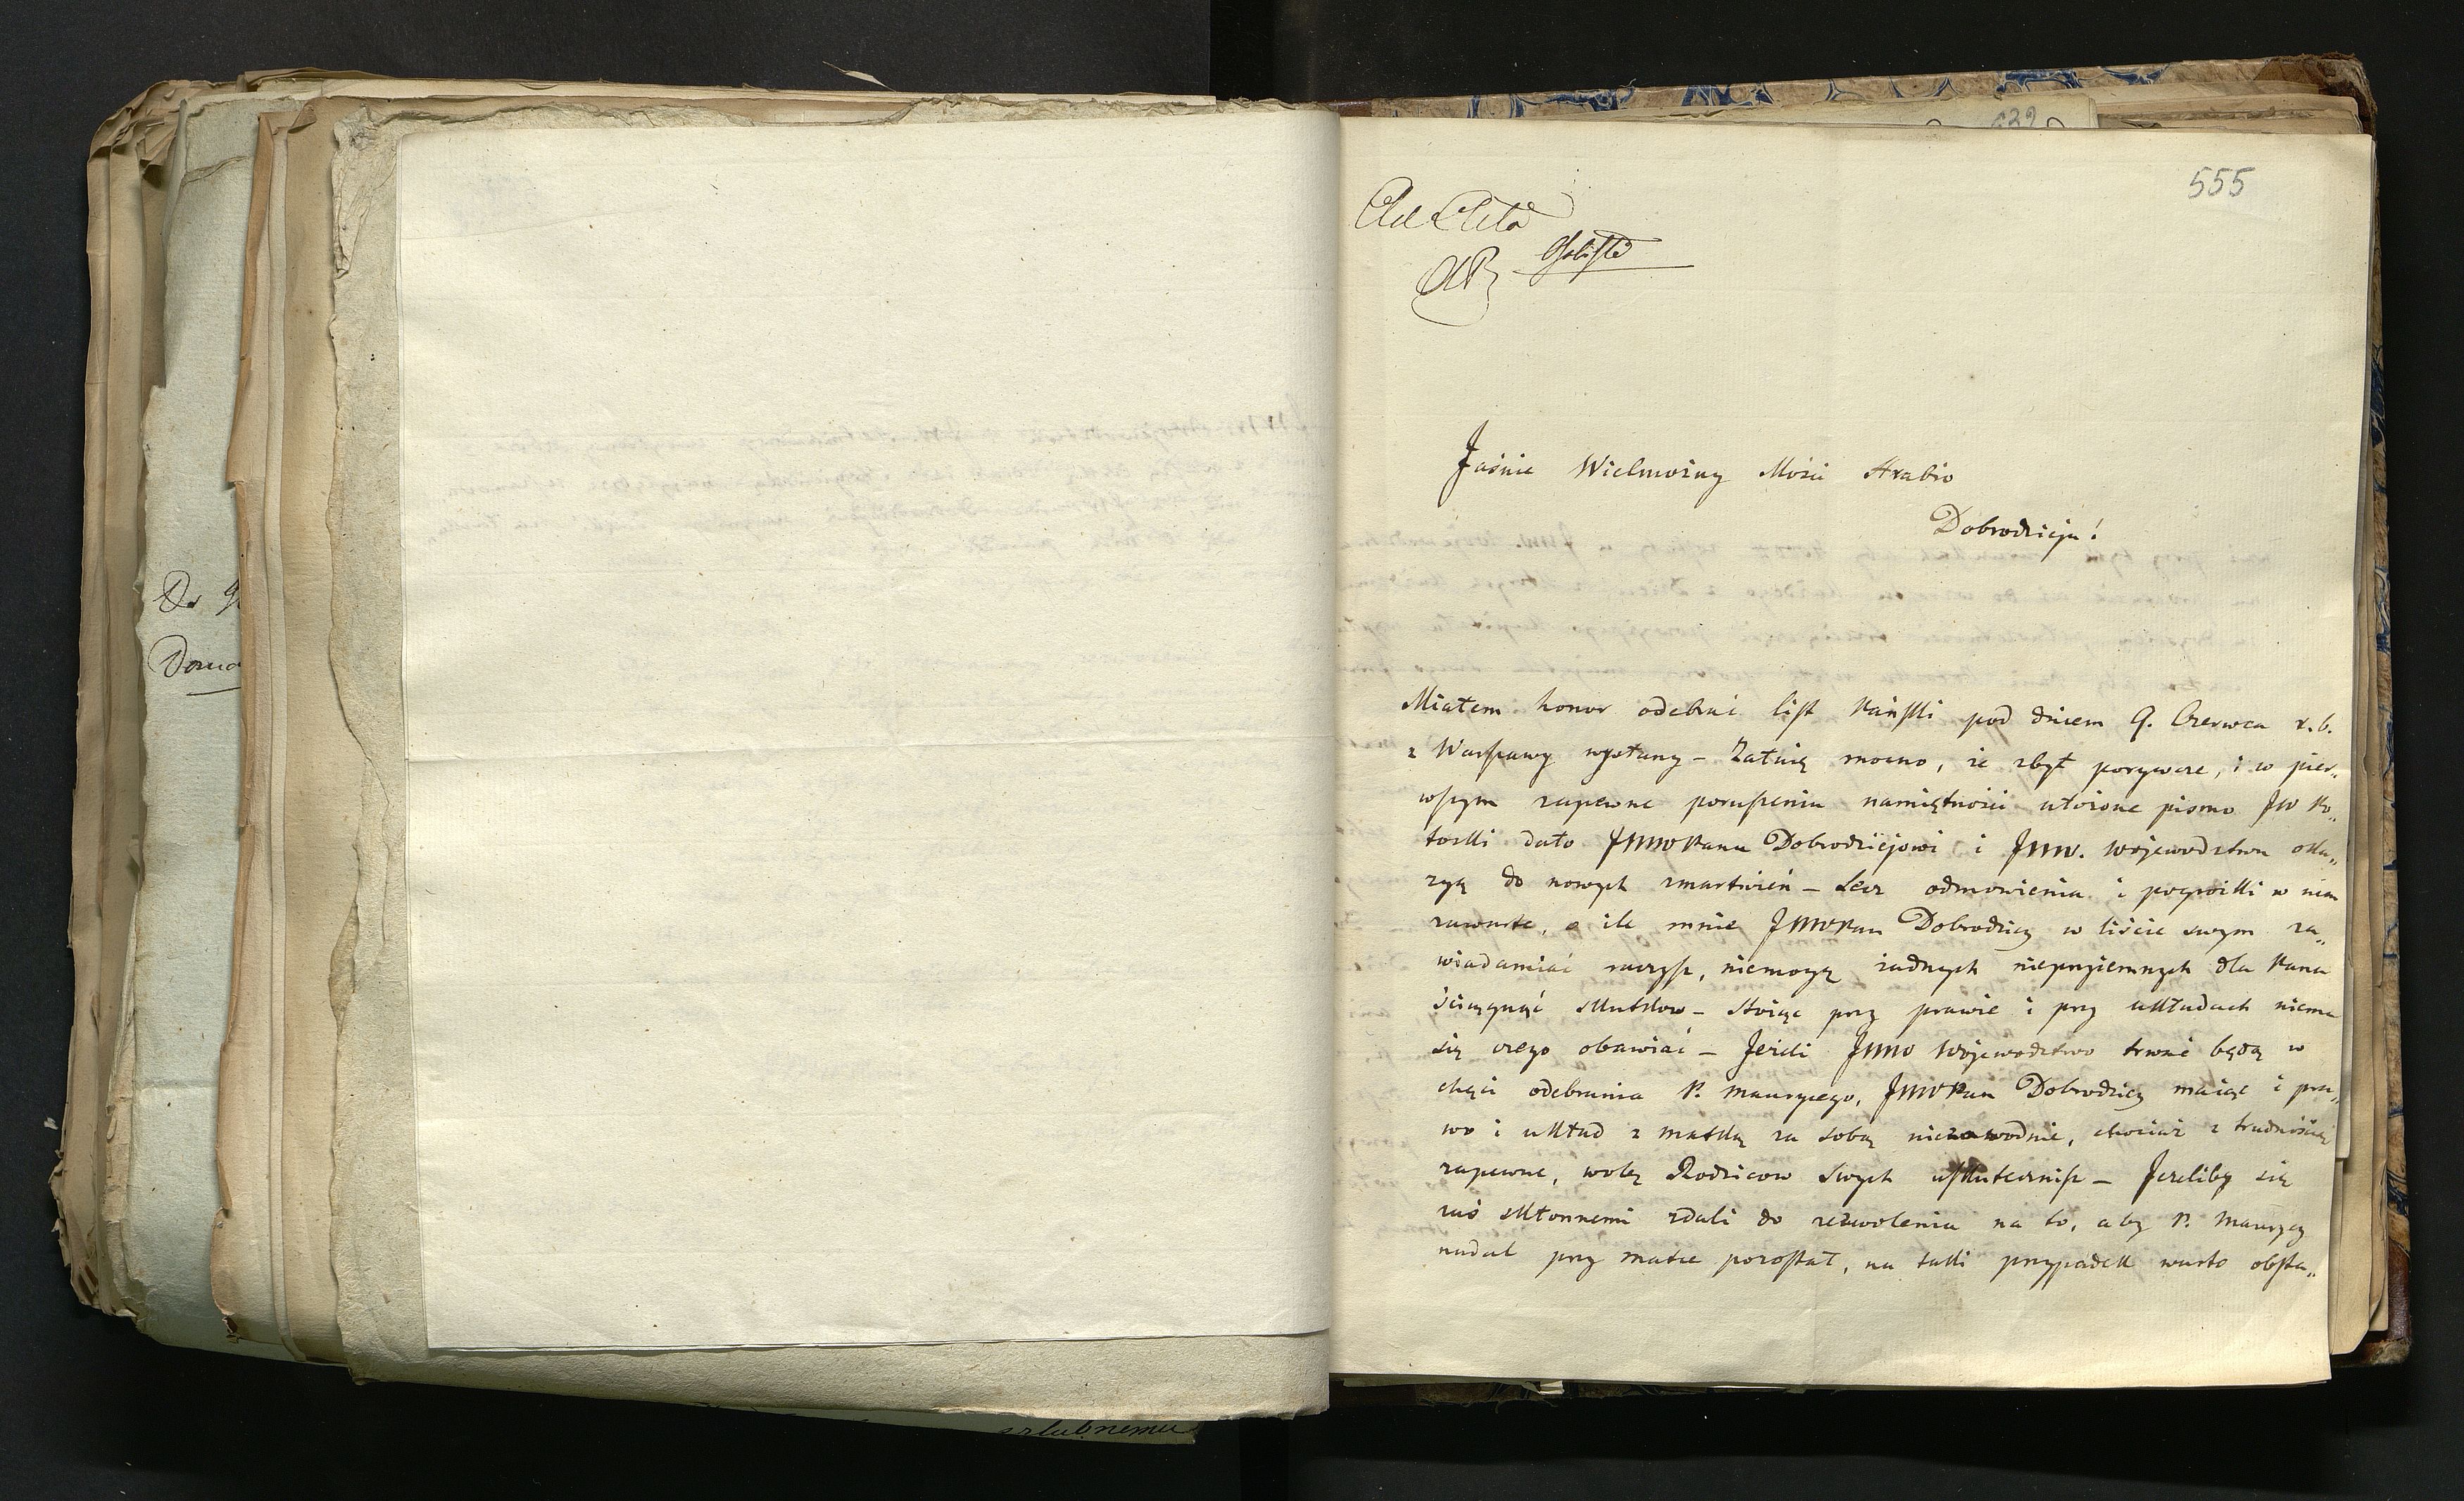 Do
Doma
szlubnemu
632
555
Ad Acta
Jaśnie Wielmożny Mości Hrabio
Dobrodzieju!
Miałem honor odebrać list Pański pod dniem 9. Czerwca r.b.
z Warszawy wysłany – Żałuię mocno, że zbyt porywcze, i w pier„
wszym zapewne poruszeniu namiętności ułożone pismo JW Po„
tocki dało JWWPanu Dobrodziejowi i JWW. Wojewodztwu oka„
zyą do nowych zmartwień – Lecz odmowienia i pogrożki w niem
zawarte, o ile mnie JWWPan Dobrodziey w liście swym za„
wiadamiać raczysz, niemogą żadnych nieprzyiemnych dla Pana
ściągnąć skutkow – Stoiąc przy prawie i przy układach niema
się czego obawiać – Jeżeli JWW Wojewodztwo trwać będą w
chęci odebrania P. Maurycego, JWWPan Dobrodziey maiąc i pra„
wo i układ z matką za sobą niezawodnie, chociaż z trudnością
zapewne, wolę Rodzicow Swych uskutecznisz – Jeżeliby się
zaś skłonnemi zdali do zezwolenia na to, aby P. Maurycy
nadal przy matce pozostał, na taki przypadek warto obsta„